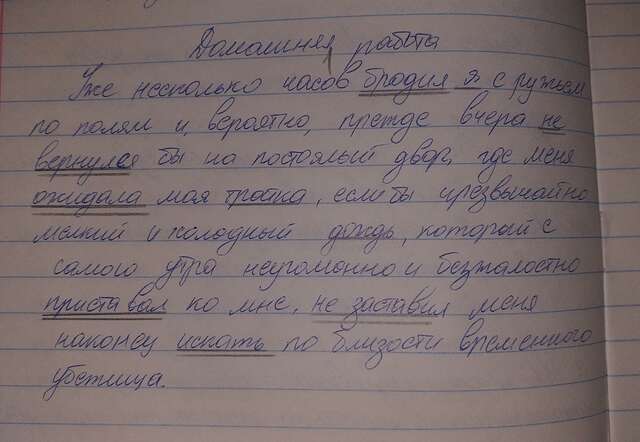 Домашняя работа
Уже несколько часов бродил я с ружьем
по полям и, вероятно, прежде вчера не
вернулся бы на постоялый двор, где меня
ожидала моя тройка, если бы чрезвычайно
мелкий и холодный дождь, который с
самого утра неугомонно и безжалостно
приставал ко мне, не заставил меня
наконец искать по близости временного
убежища.